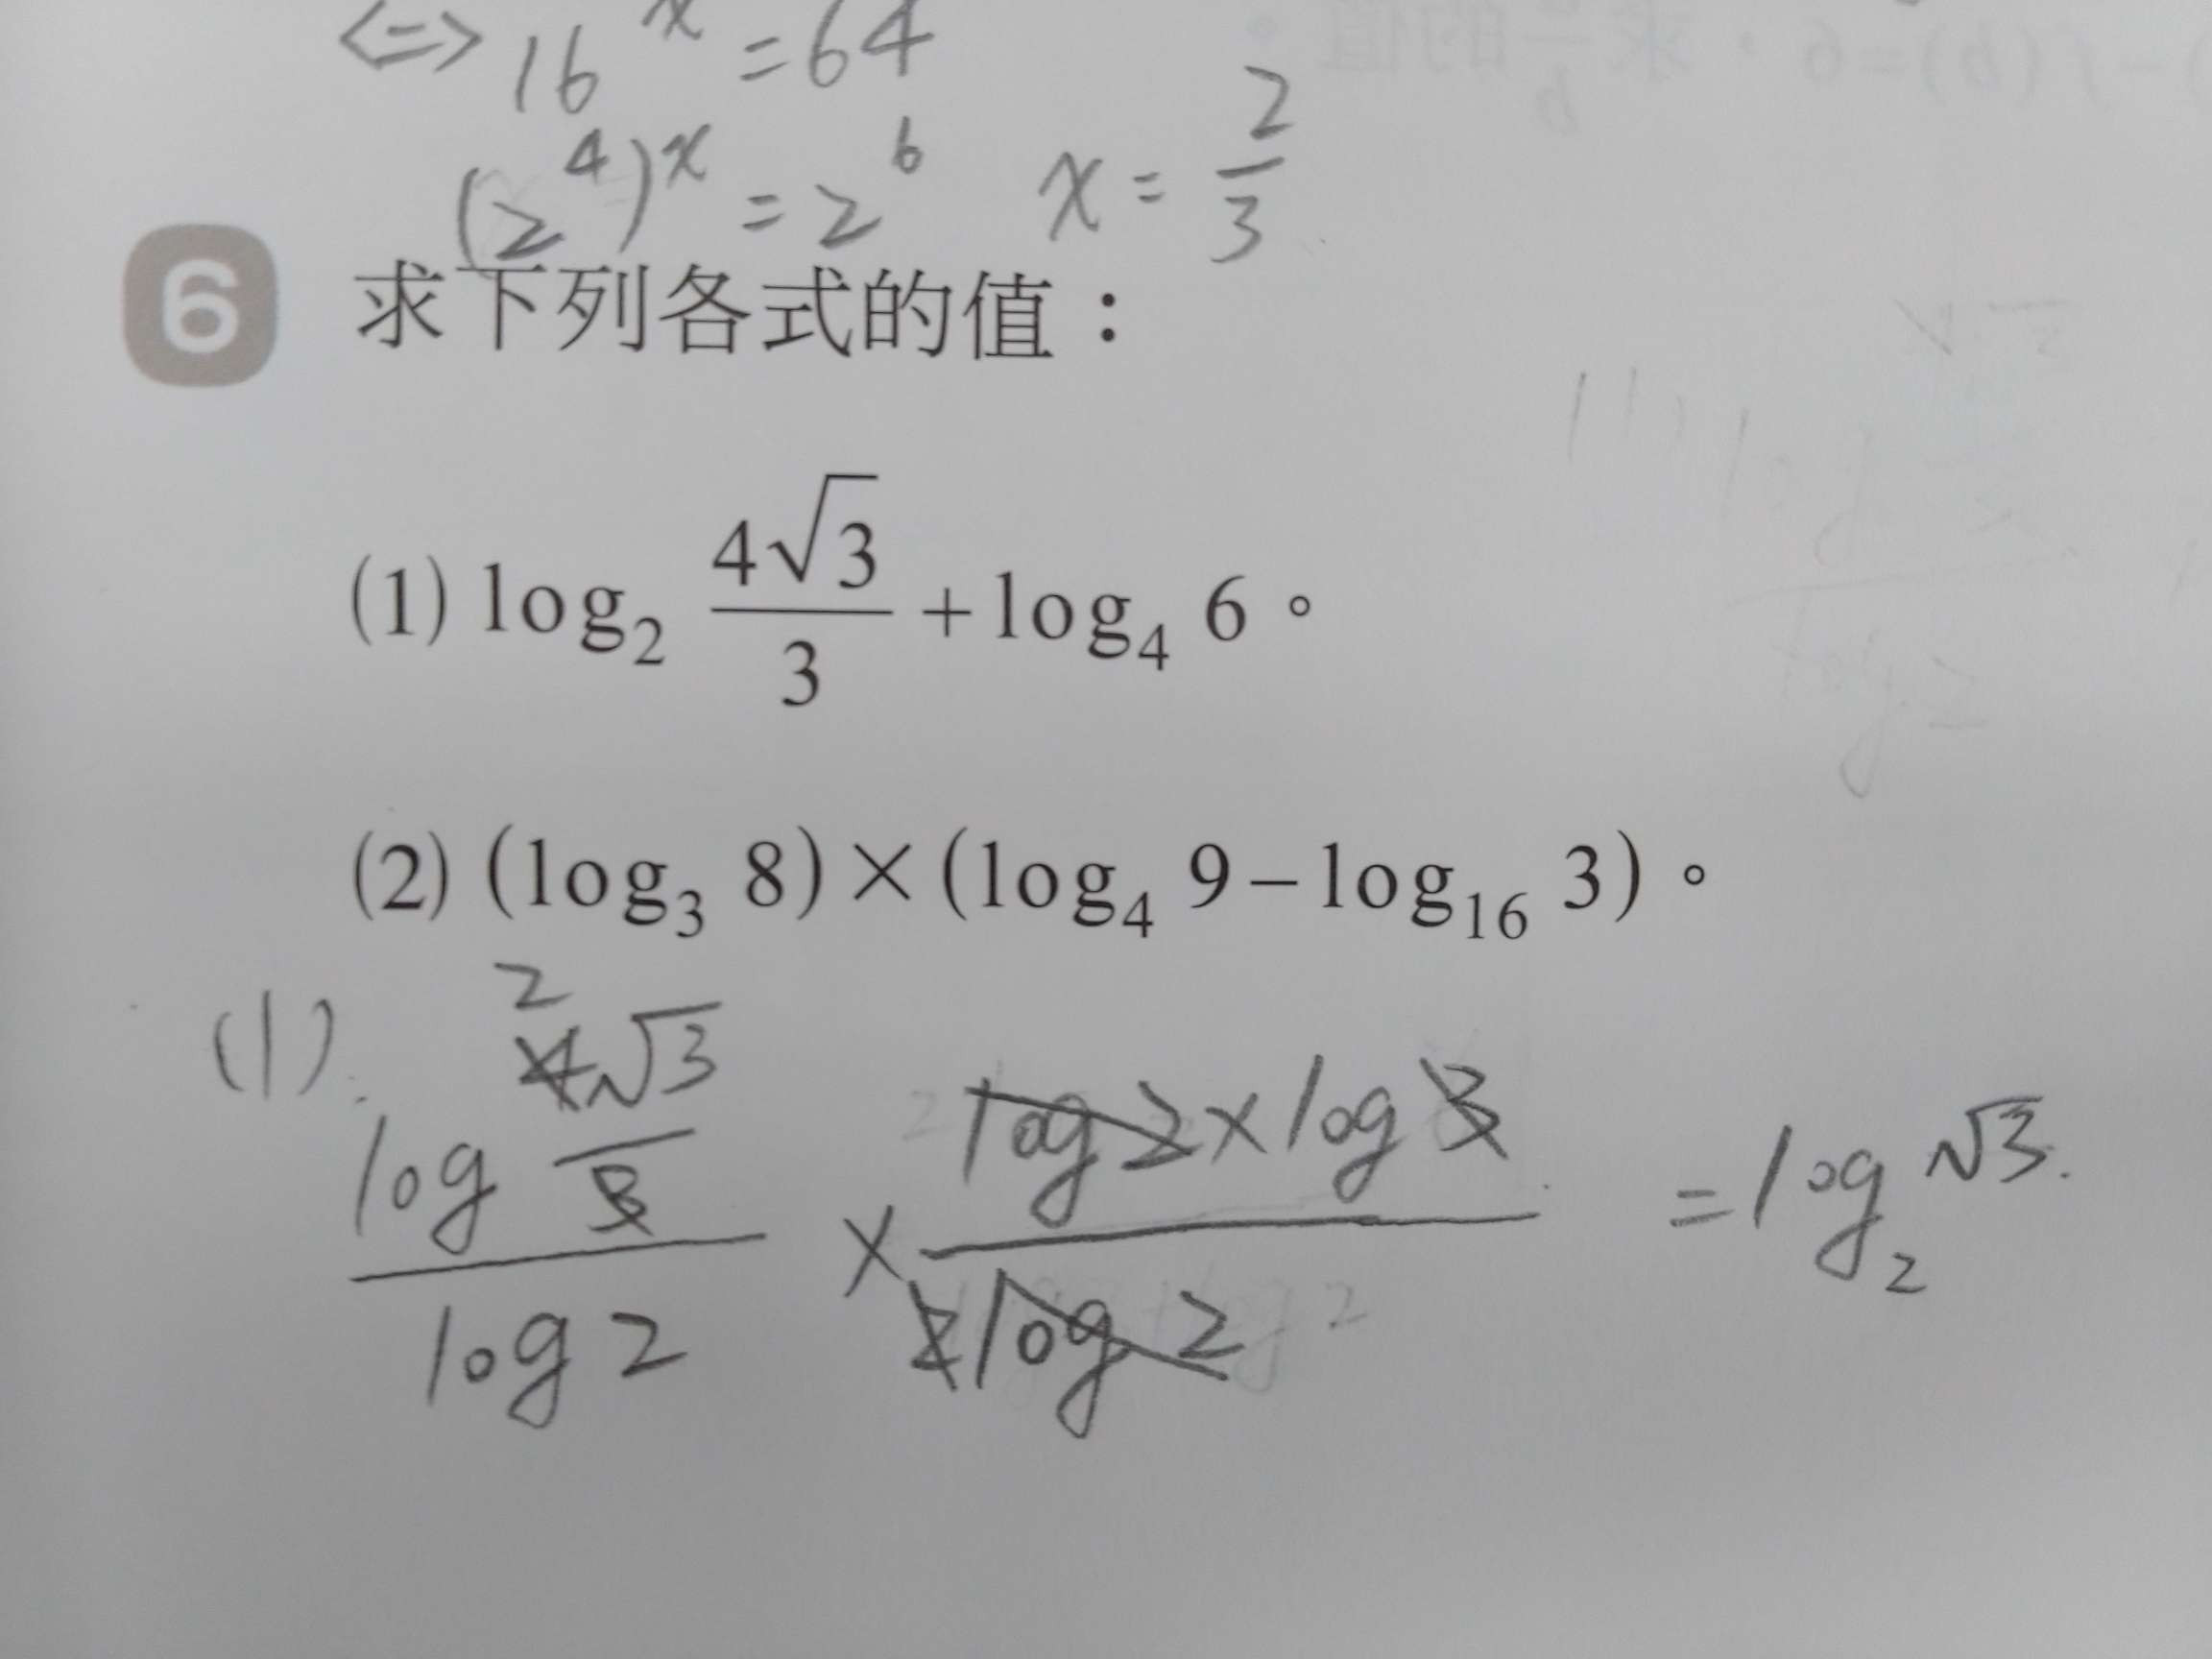 <=> 16^x = 64
(2^4)^x = 2^6 x = 2/3
6 求下列各式的值：
(1) log₂ 4√3/3 + log₄ 6。
(2) (log₃ 8)×(log₄ 9－log₁₆ 3)。
(1). log (4√3/3) / log 2 × (log 2 × log 3) / (2 log 2) = log₂ √3.